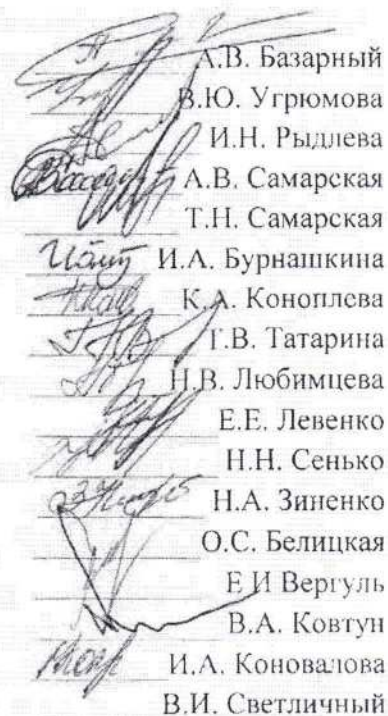 А.В. Базарный
В.Ю. Угрюмова
И.Н. Рыдлева
А.В. Самарская
Т.Н. Самарская
И.А. Бурнашкина
К.А. Коноплева
Т.В. Татарина
Н.В. Любимцева
Е.Е. Левенко
Н.Н. Сенько
Н.А. Зиненко
О.С. Белицкая
Е И Вергуль
В.А. Ковтун
И.А. Коновалова
В.И. Светличный